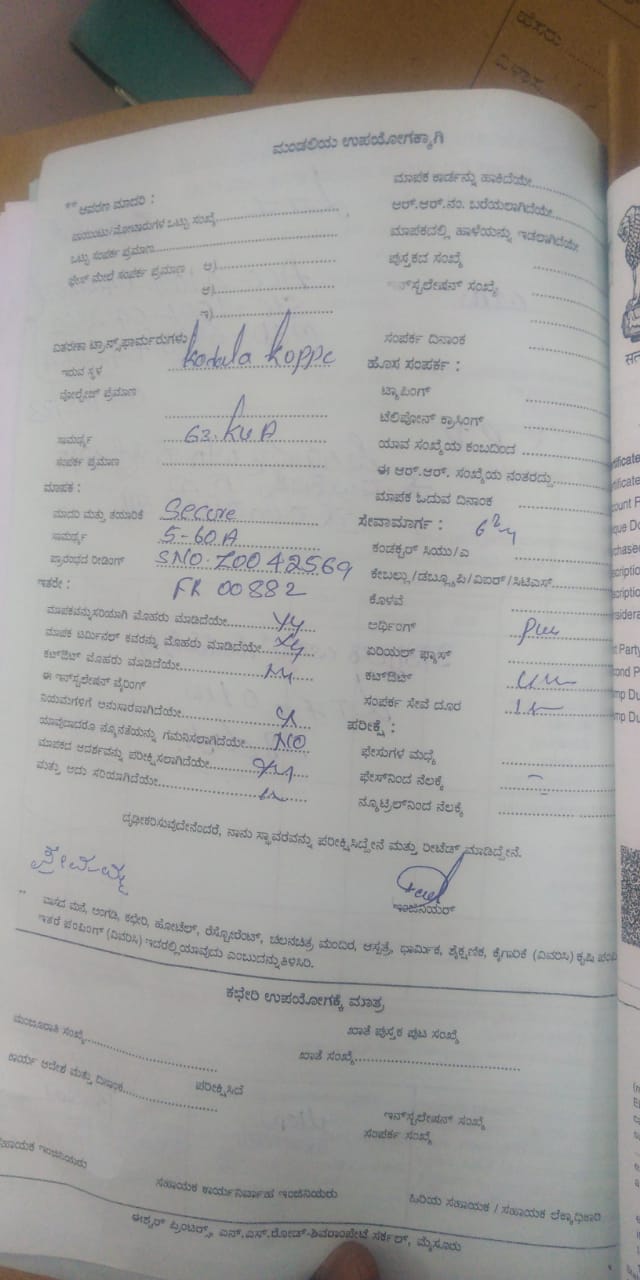 ಹೆಸರು
ವಿಳಾಸ
ಮಂಡಲಿಯ ಉಪಯೋಗಕ್ಕಾಗಿ
** ಆವರಣ ಮಾದರಿ :
ಪಾಯಿಂಟು/ಮೋಟಾರುಗಳ ಒಟ್ಟು ಸಂಖ್ಯೆ
ಒಟ್ಟು ಸಂಪರ್ಕ ಪ್ರಮಾಣ
ಫೇಸ್ ಮೇಲೆ ಸಂಪರ್ಕ ಪ್ರಮಾಣ ಅ)
ಆ)
ಇ)
ವಿತರಣಾ ಟ್ರಾನ್ಸ್‌ಫಾರ್ಮರುಗಳು
ಇರುವ ಸ್ಥಳ kodala koppe
ವೋಲ್ಟೇಜ್ ಪ್ರಮಾಣ
ಸಾಮರ್ಥ್ಯ 63. KVA
ಸಂಪರ್ಕ ಪ್ರಮಾಣ
ಮಾಪಕ :
ಮಾದರಿ ಮತ್ತು ತಯಾರಿಕೆ Secure
ಸಾಮರ್ಥ್ಯ 5-60A
ಪ್ರಾರಂಭದ ರೀಡಿಂಗ್ SNO. Z0042569
ಇತರೇ : FR 00882
ಮಾಪಕವನ್ನು ಸರಿಯಾಗಿ ಮೊಹರು ಮಾಡಿದೆಯೇ
ಮಾಪಕ ಟರ್ಮಿನಲ್ ಕವರನ್ನು ಮೊಹರು ಮಾಡಿದೆಯೇ
ಕಟ್‌ಔಟ್ ಮೊಹರು ಮಾಡಿದೆಯೇ
ಈ ಇನ್‌ಸ್ಟಲೇಷನ್ ವೈರಿಂಗ್
ನಿಯಮಗಳಿಗೆ ಅನುಸಾರವಾಗಿದೆಯೇ
ಯಾವುದಾದರೂ ನ್ಯೂನತೆಯನ್ನು ಗಮನಿಸಲಾಗಿದೆಯೇ NO
ಮಾಪಕದ ಆದರ್ಶವನ್ನು ಪರೀಕ್ಷಿಸಲಾಗಿದೆಯೇ
ಮತ್ತು ಅದು ಸರಿಯಾಗಿದೆಯೇ
ಮಾಪಕ ಕಾರ್ಡನ್ನು ಹಾಕಿದೆಯೇ
ಆರ್.ಆರ್.ನಂ. ಬರೆಯಲಾಗಿದೆಯೇ
ಮಾಪಕದಲ್ಲಿ ಹಾಳೆಯನ್ನು ಇಡಲಾಗಿದೆಯೇ
ಪುಸ್ತಕದ ಸಂಖ್ಯೆ
ಇನ್‌ಸ್ಟಲೇಷನ್ ಸಂಖ್ಯೆ
ಸಂಪರ್ಕ ದಿನಾಂಕ
ಹೊಸ ಸಂಪರ್ಕ :
ಟ್ಯಾಪಿಂಗ್
ಟೆಲಿಫೋನ್ ಕ್ರಾಸಿಂಗ್
ಯಾವ ಸಂಖ್ಯೆಯ ಕಂಬದಿಂದ
ಈ ಆರ್.ಆರ್. ಸಂಖ್ಯೆಯ ನಂತರದ್ದು
ಮಾಪಕ ಓದುವ ದಿನಾಂಕ
ಸೇವಾಮಾರ್ಗ :
ಕಂಡಕ್ಟರ್ ಸಿಯು/ಎ
ಕೇಬಲ್ಲು/ಡಬ್ಲ್ಯೂಪಿ/ವಿಐಆರ್/ಸಿಟಿಎಸ್
ಕೊಳವೆ
ಅರ್ಥಿಂಗ್
ಏರಿಯಲ್ ಫ್ಯೂಸ್
ಕಟ್‌ಔಟ್
ಸಂಪರ್ಕ ಸೇವೆ ದೂರ
ಪರೀಕ್ಷೆ :
ಫೇಸುಗಳ ಮಧ್ಯೆ
ಫೇಸ್‌ನಿಂದ ನೆಲಕ್ಕೆ
ನ್ಯೂಟ್ರಲ್‌ನಿಂದ ನೆಲಕ್ಕೆ
ದೃಢೀಕರಿಸುವುದೇನೆಂದರೆ, ನಾನು ಸ್ಥಾವರವನ್ನು ಪರೀಕ್ಷಿಸಿದ್ದೇನೆ ಮತ್ತು ರೀಟೆಡ್ ಮಾಡಿದ್ದೇನೆ.
ಇಂಜಿನಿಯರ್
** ವಾಸದ ಮನೆ, ಅಂಗಡಿ, ಕಛೇರಿ, ಹೋಟೆಲ್, ರೆಸ್ಟೋರೆಂಟ್, ಚಲನಚಿತ್ರ ಮಂದಿರ, ಆಸ್ಪತ್ರೆ, ಧಾರ್ಮಿಕ, ಶೈಕ್ಷಣಿಕ, ಕೈಗಾರಿಕೆ (ವಿವರಿಸಿ) ಕೃಷಿ
ಇತರೆ ಪಂಪಿಂಗ್ (ವಿವರಿಸಿ) ಇದರಲ್ಲಿ ಯಾವುದು ಎಂಬುದನ್ನು ತಿಳಿಸಿರಿ.
ಕಛೇರಿ ಉಪಯೋಗಕ್ಕೆ ಮಾತ್ರ
ಮಂಜೂರಾತಿ ಸಂಖ್ಯೆ
ಖಾತೆ ಪುಸ್ತಕ ಪುಟ ಸಂಖ್ಯೆ
ಕಾರ್ಯ ಆದೇಶ ಮತ್ತು ದಿನಾಂಕ
ಖಾತೆ ಸಂಖ್ಯೆ
ಪರೀಕ್ಷಿಸಿದೆ
ಇನ್‌ಸ್ಟಲೇಷನ್ ಸಂಖ್ಯೆ
ಸಂಪರ್ಕ ಸಂಖ್ಯೆ
ಸಹಾಯಕ ಇಂಜಿನಿಯರು
ಸಹಾಯಕ ಕಾರ್ಯನಿರ್ವಾಹ ಇಂಜಿನಿಯರು
ಹಿರಿಯ ಸಹಾಯಕ / ಸಹಾಯಕ ಲೆಕ್ಕಾಧಿಕಾರಿ
ಈಶ್ವರ್ ಪ್ರಿಂಟರ್ಸ್, ಎನ್.ಎಸ್.ರೋಡ್-ಶಿವರಾಂಪೇಟೆ ಸರ್ಕಲ್, ಮೈಸೂರು